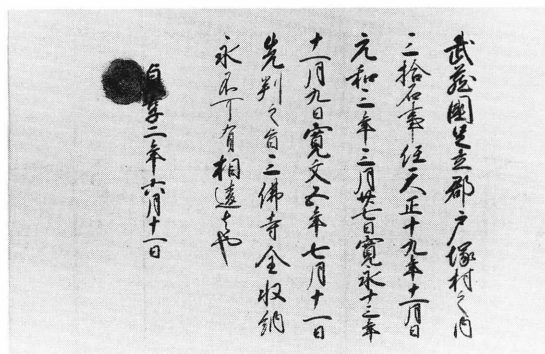 武蔵國足立郡戸塚村之内
三拾石事任天正十九年十一月日
元和三年三月廿七日寛永十三年
十一月九日寛文五年七月十一日
先判之旨三佛寺全収納
永不可有相違者也
貞享二年六月十一日